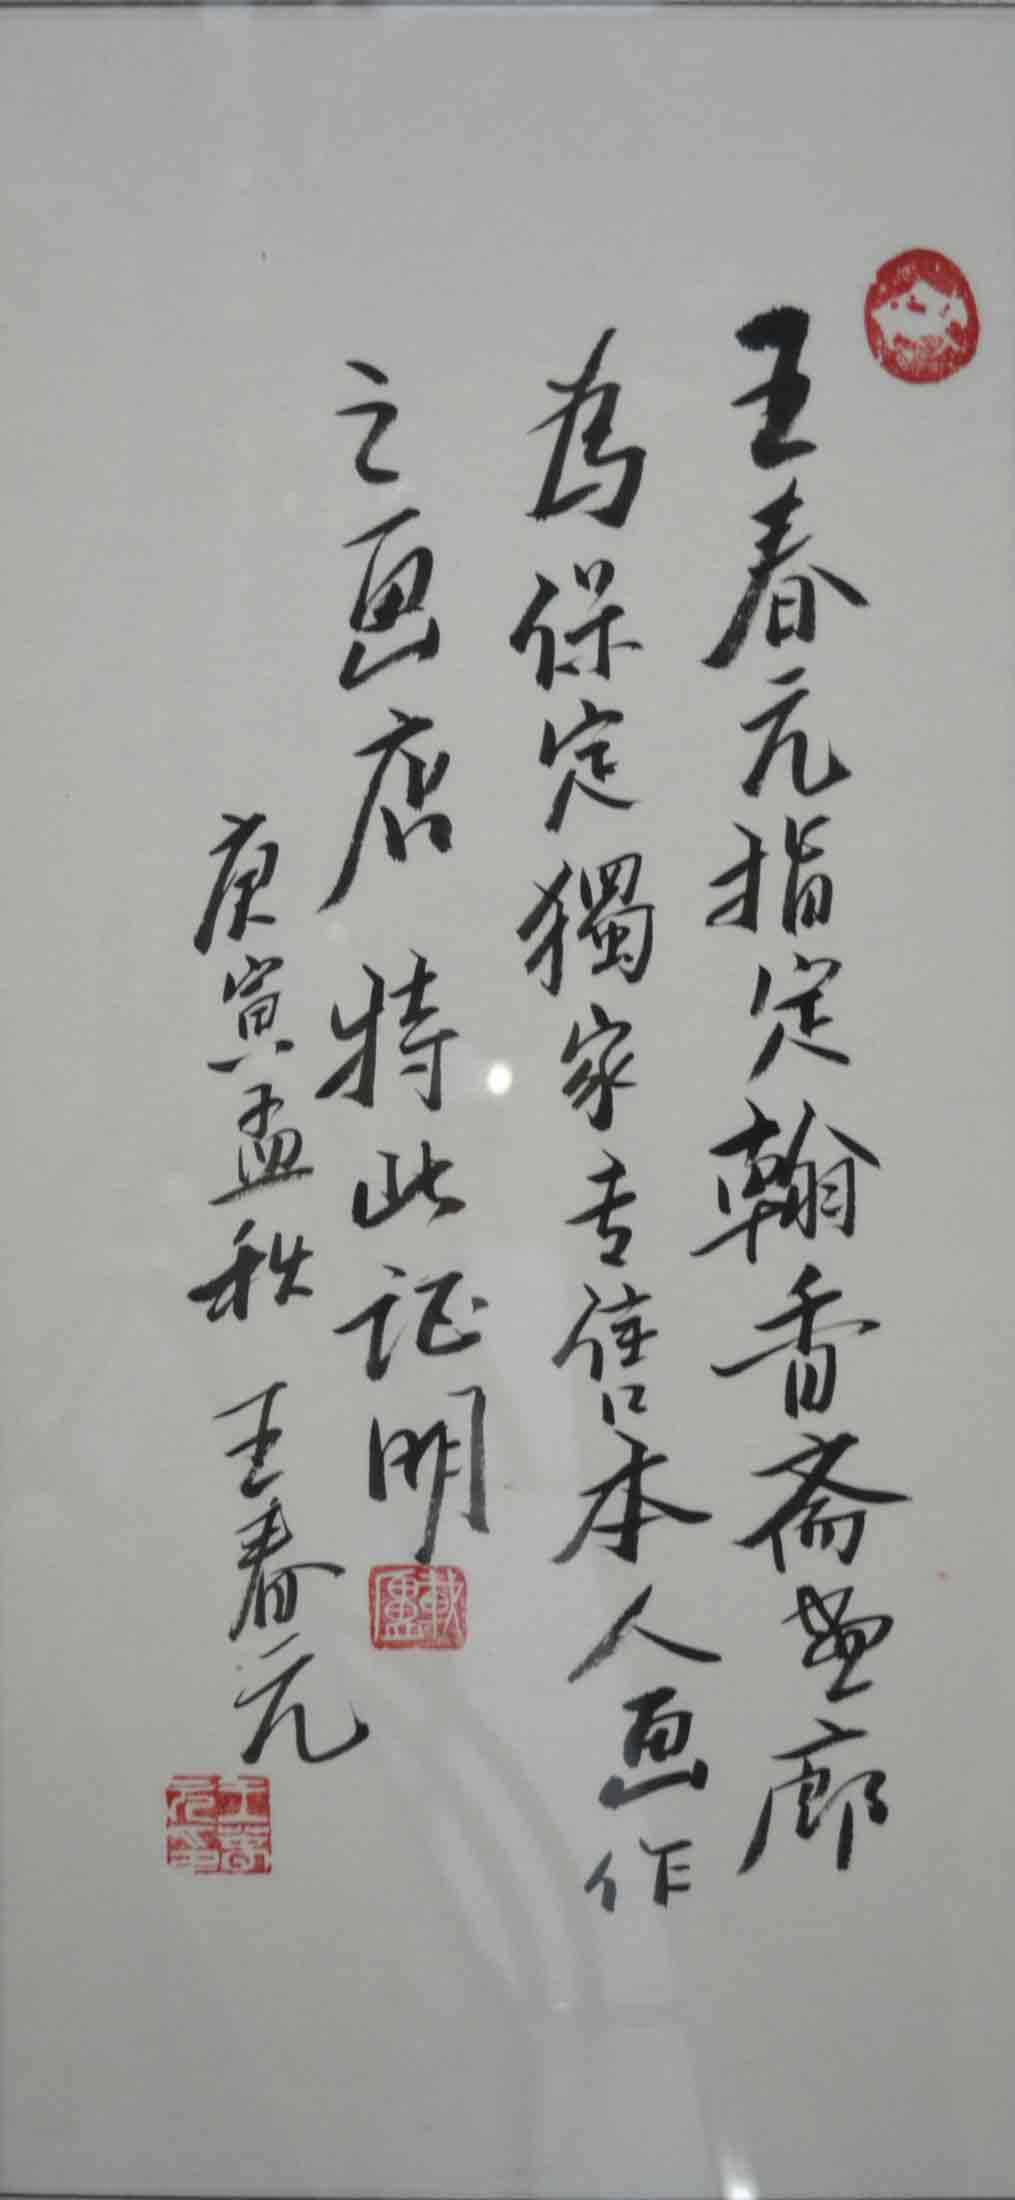 王春元指定翰香斋画廊
為保定獨家专售本人画作
之画店 特此证明
庚寅孟秋 王春元